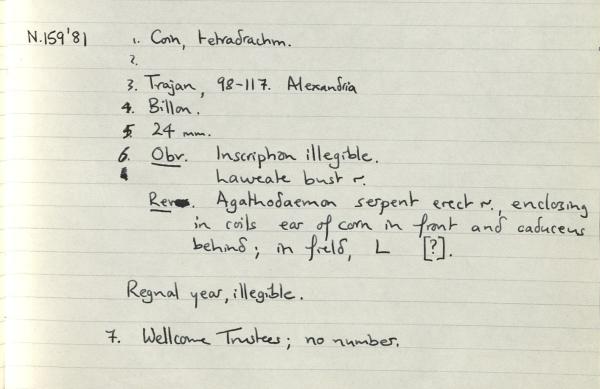 N.159'81 1. Coin, tetradrachm.
2.
3. Trajan, 98-117. Alexandria
4. Billon.
5. 24 mm.
6. Obv. Inscription illegible.
Laureate bust r.
Rev. Agathodaemon serpent erect r., enclosing
in coils ear of corn in front and caduceus
behind; in field, L [?].
Regnal year, illegible.
7. Wellcome Trustees; no number.